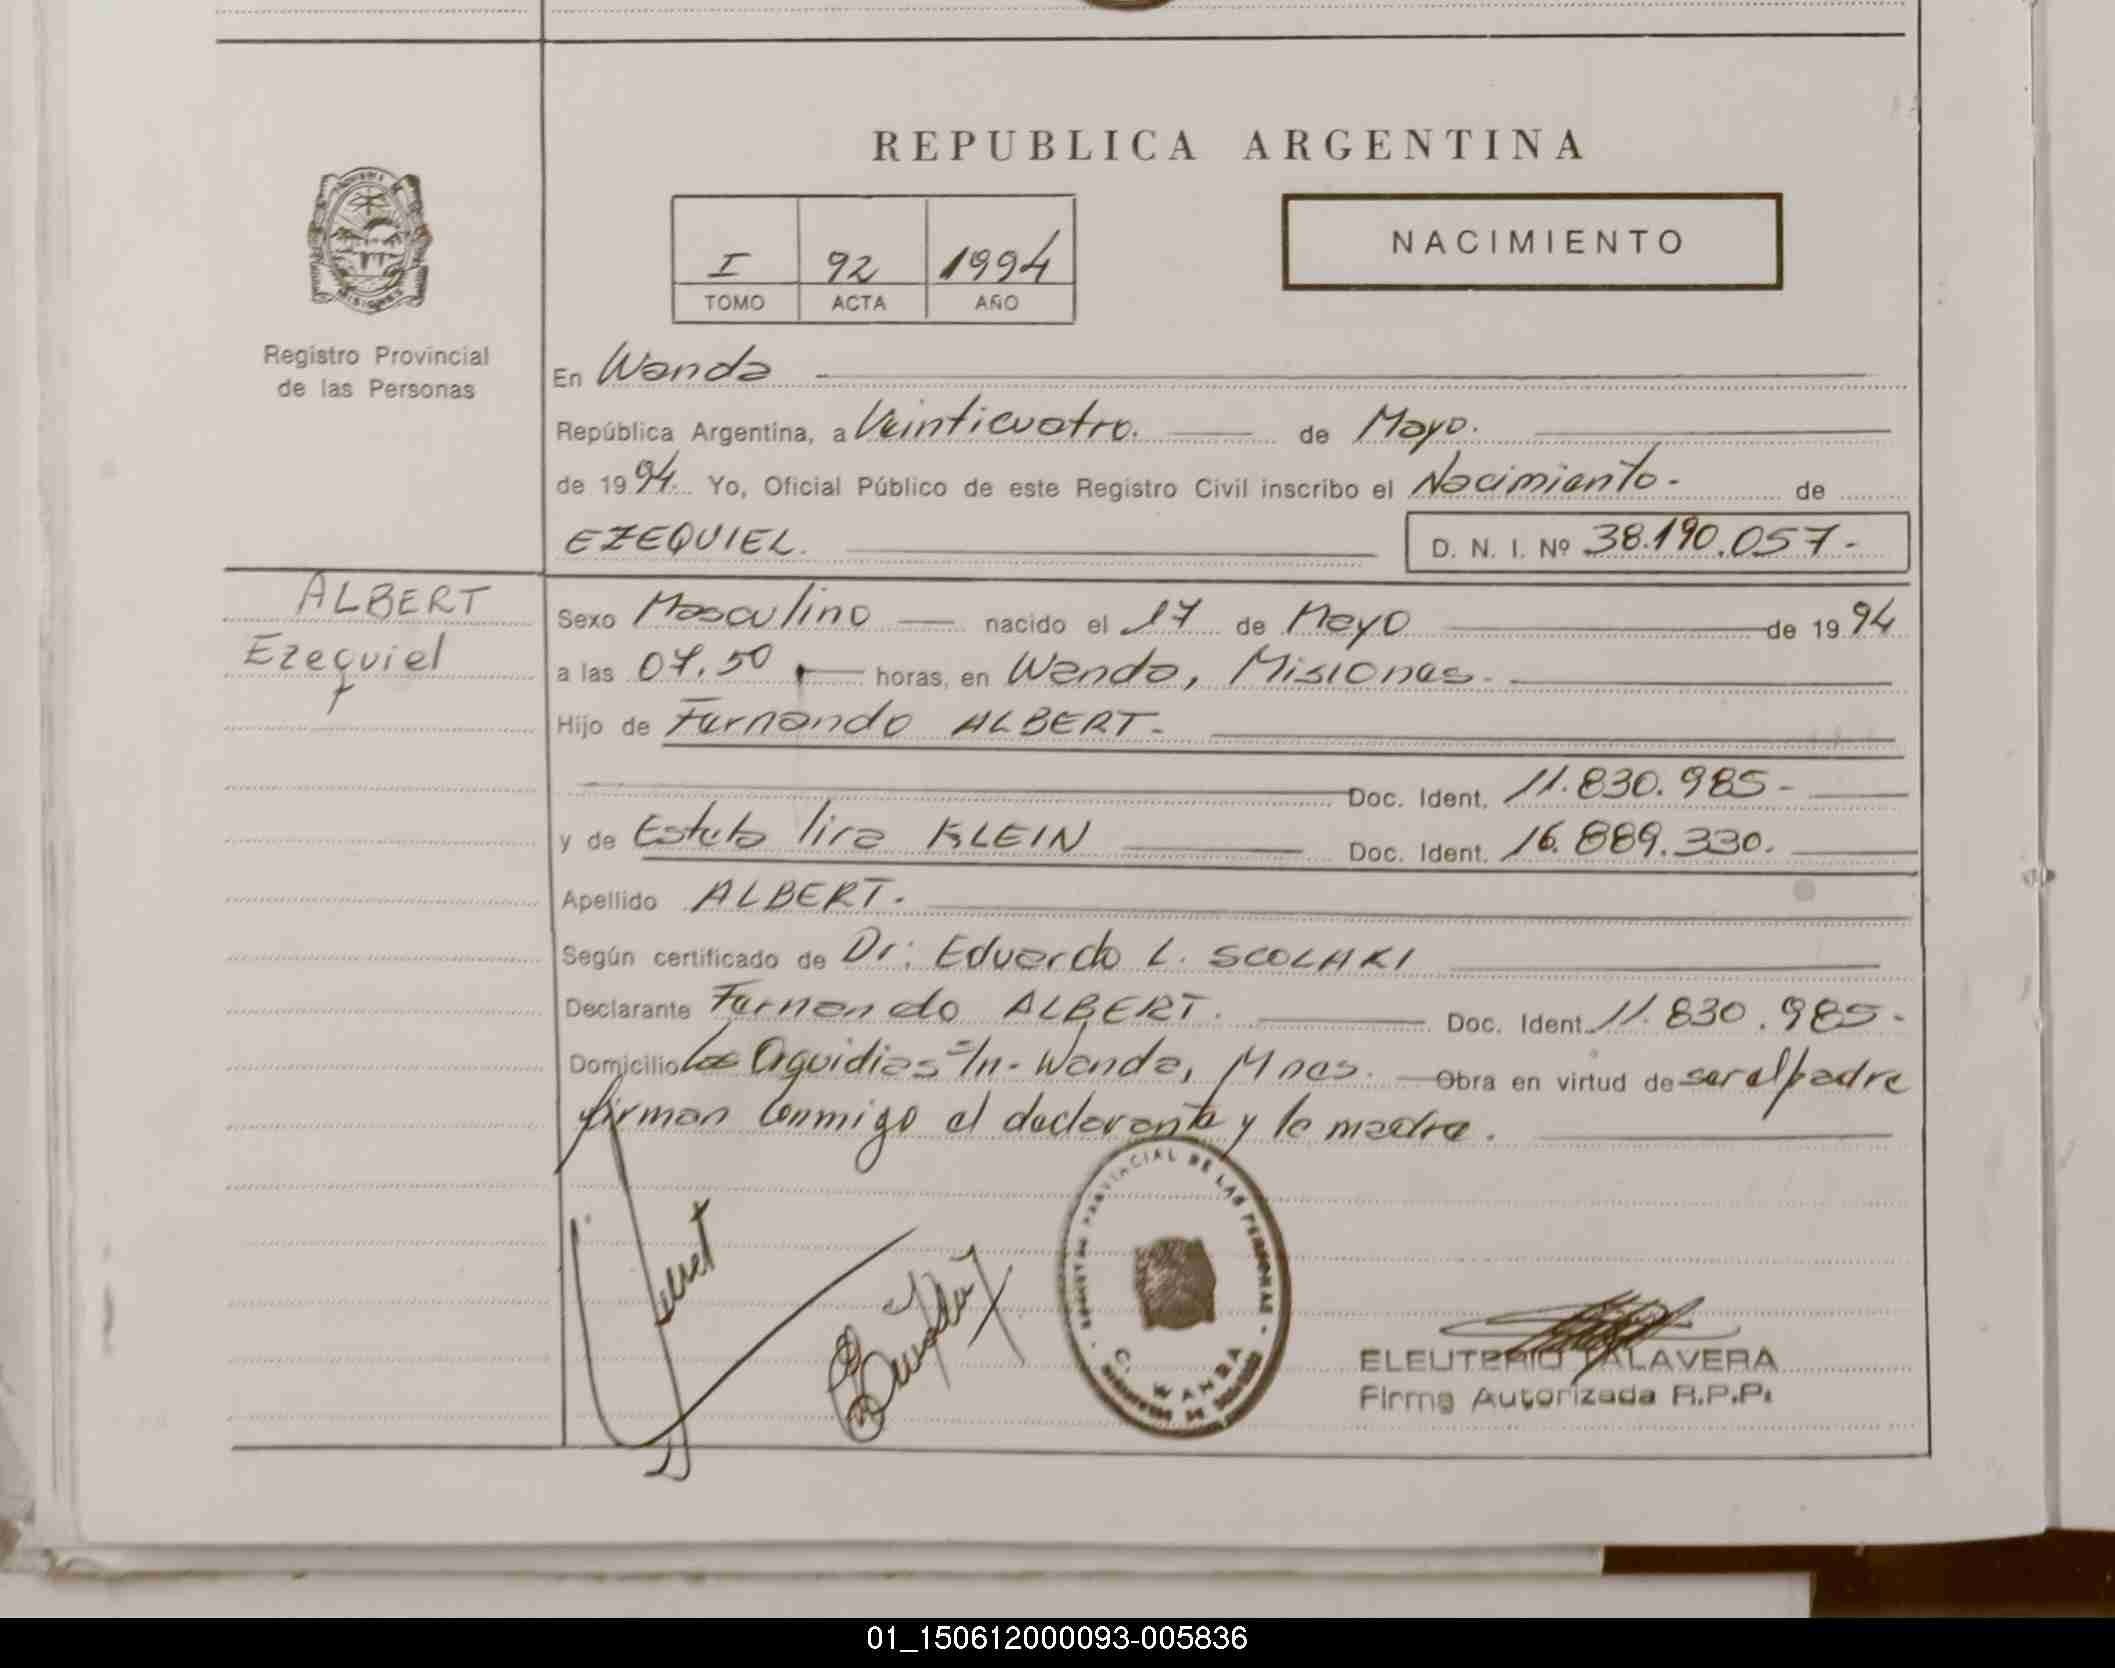 REPUBLICA ARGENTINA
I 92 1994
TOMO ACTA AÑO
NACIMIENTO
Registro Provincial
de las Personas
En Wanda
República Argentina, a Veinticuatro. de Mayo.
de 1994. Yo, Oficial Público de este Registro Civil inscribo el Nacimiento. de
EZEQUIEL. D. N. I. Nº 38.190.057-
ALBERT
Ezequiel
Sexo Masculino nacido el 17 de Mayo de 1994
a las 07.50 horas, en Wanda, Misiones.
Hijo de Fernando ALBERT-
Doc. Ident. 11.830.985-
y de Estela lira KLEIN Doc. Ident. 16.889.330.
Apellido ALBERT.
Según certificado de Dr: Eduardo L. SCOLARI
Declarante Fernando ALBERT. Doc. Ident. 11.830.985-
Domicilio Las Orquidias S/n- Wanda, Mnes. Obra en virtud de ser el padre
firman conmigo el declarante y la madre.
REGISTRO PROVINCIAL DE LAS PERSONAS
WANDA
ELEUTERIO TALAVERA
Firma Autorizada R.P.P.
01_150612000093-005836